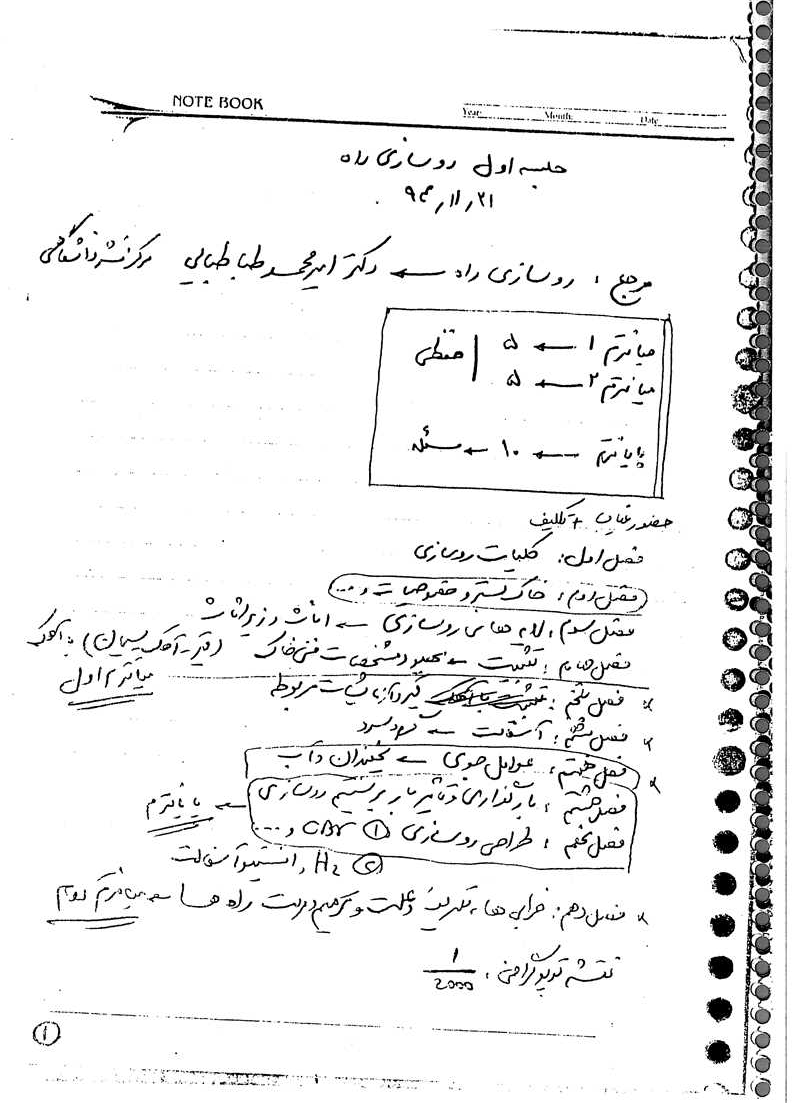 NOTE BOOK
Year: Month: Date
جلسه اول روسازی راه
۹۴/۱۱/۲۱
مرجع : روسازی راه ← دکتر امیرمحمد طباطبایی مرکز نشر دانشگاهی
میانترم ۱ ← ۵ حفظی
میانترم ۲ ← ۵
پایانترم ← ۱۰ ← مسئله
حضور غیاب + تکلیف
فصل اول : کلیات روسازی
فصل دوم : خاک بستر و خصوصیات و ...
فصل سوم : لایه های روسازی ← اساس و زیراساس
فصل چهارم : تثبیت ← بهبود مشخصات فنی خاک (قیر - آهک سیمان)
میانترم اول
* فصل پنجم : قیر و آزمایشات مربوط
* فصل ششم : آسفالت ← گرم و سرد
* فصل هفتم : عوامل جوی ← یخبندان و آب
فصل هشتم : بارگذاری و تاثیر بار بر سیستم روسازی ← پایانترم
فصل نهم : طراحی روسازی ① CBR و ...
② انستیتو آسفالت
* فصل دهم : خرابی ها ، تعریف و علت و ترمیم و مرمت راه ها ← میانترم دوم
نقشه توپوگرافی : 1/2000
①